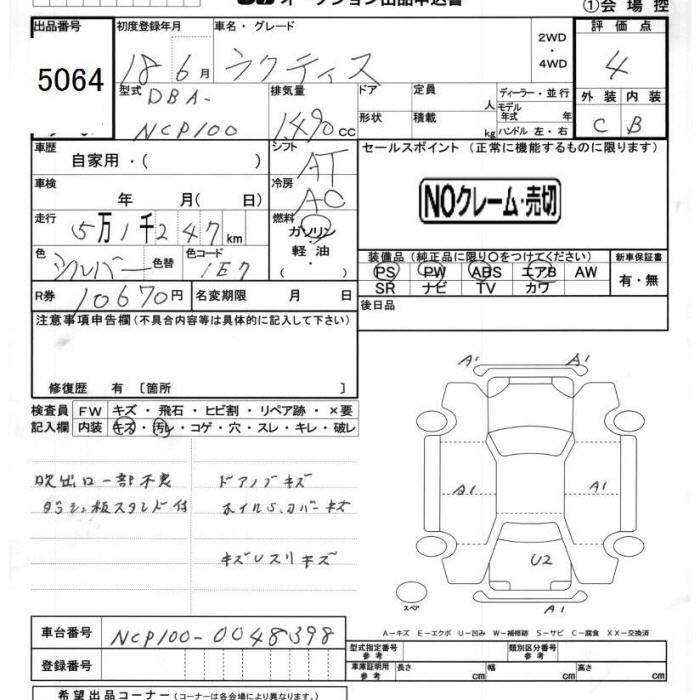 オークション出品申込書
①会場控
出品番号 初度登録年月 車名・グレード 2WD・4WD 評価点
5064 18 6月 ラクティス 4
型式 排気量 ドア 定員 人 ディーラー・並行 外装 内装
DBA-
NCP100 1,490cc 形状 積載 kg モデル年式 年 ハンドル 左・右 C B
車歴 自家用・( ) シフト AT セールスポイント (正常に機能するものに限ります)
車検 年 月( 日) 冷房 AC NOクレーム・売切
走行 5万1千247km 燃料 ガソリン 軽油・
色 シルバー 色替 色コード 1E7 ( )
装備品(純正品に限り〇をつけてください) 新車保証書
PS PW ABS エアB AW 有・無
SR ナビ TV カワ
R券 10670円 名変期限 月 日 後日品
注意事項申告欄(不具合内容等は具体的に記入して下さい)
修復歴 有〔箇所 〕
検査員 FW キズ・飛石・ヒビ割・リペア跡・×要
記入欄 内装 キズ・汚レ・コゲ・穴・スレ・キレ・破レ
A1 A1
吹出口一部不良 ドアノブキズ
ダッシュ板スタンド付 ホイルS.カバーキズ
A1 A1
キズUスリキズ
U2
スペア A1
A-キズ E-エクボ U-凹み W-補修跡 S-サビ C-腐食 XX-交換済
車台番号 NCP100-0048398
型式指定番号 参考 類別区分番号 参考
登録番号 車庫証明用 参考 長さ cm 幅 cm 高さ cm
希望出品コーナー(コーナーは各会場により異なります)